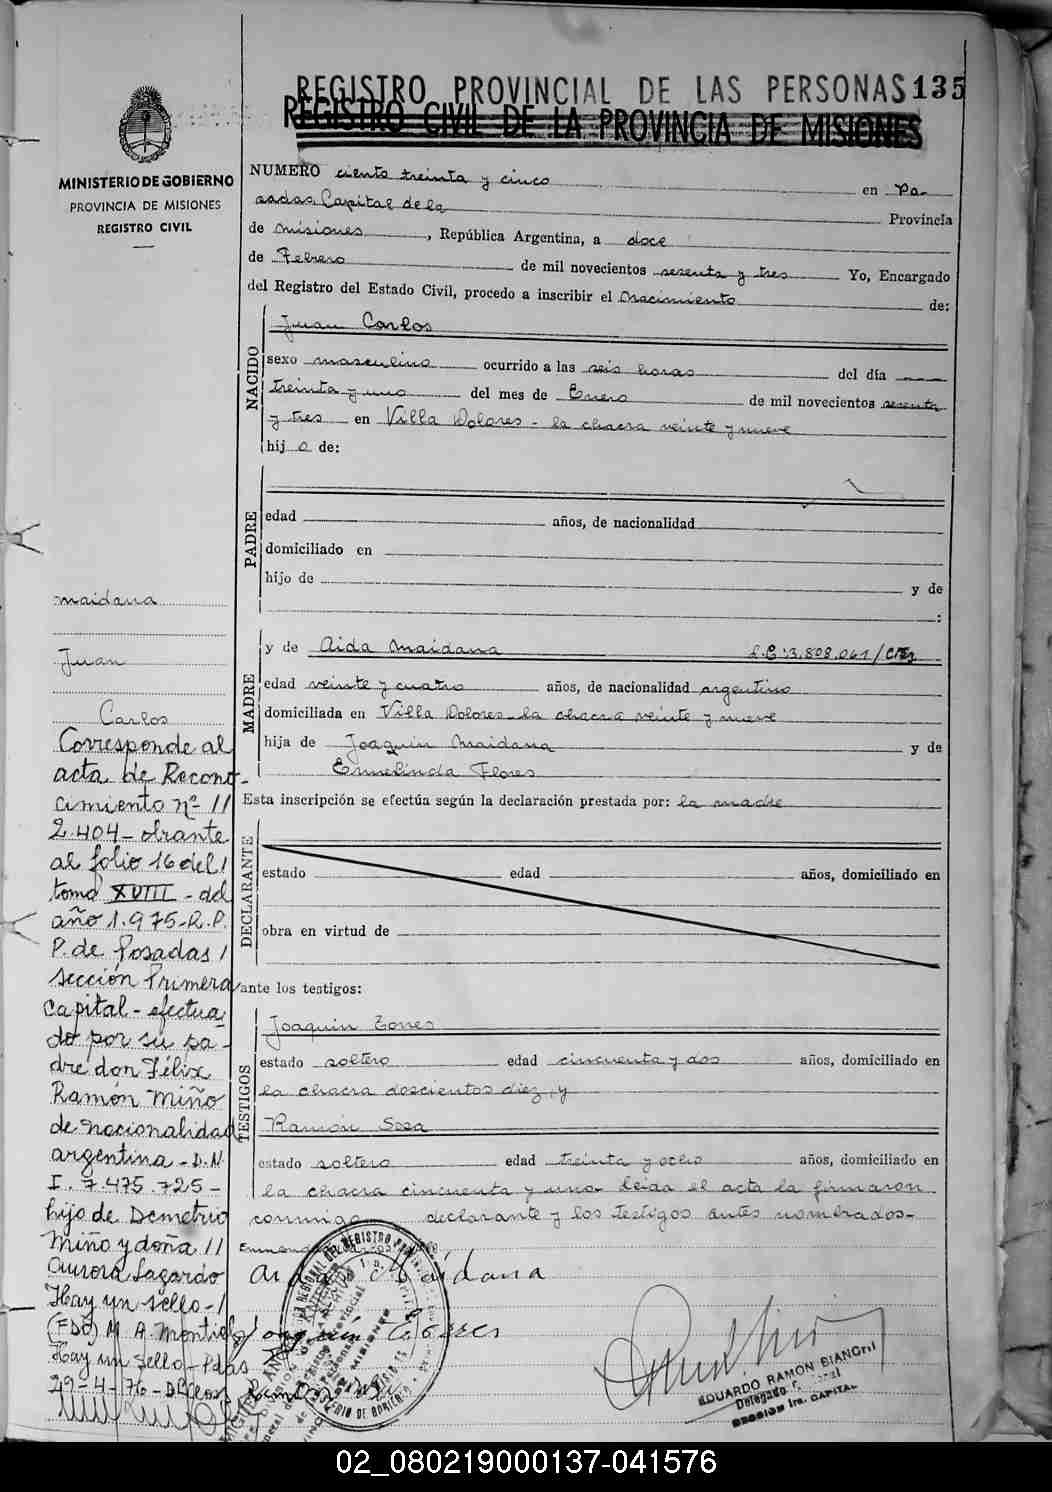 REGISTRO PROVINCIAL DE LAS PERSONAS 135
REGISTRO CIVIL DE LA PROVINCIA DE MISIONES
MINISTERIO DE GOBIERNO
PROVINCIA DE MISIONES
REGISTRO CIVIL
NUMERO ciento treinta y cinco en Po-
sadas, Capital de la Provincia
de misiones, República Argentina, a doce
de Febrero de mil novecientos sesenta y tres Yo, Encargado
del Registro del Estado Civil, procedo a inscribir el Nacimiento de:
NACIDO
Juan Carlos
sexo masculino ocurrido a las seis horas del día
treinta y uno del mes de Enero de mil novecientos sesenta
y tres en Villa Dolores - la chacra veinte y nueve
hij o de:
PADRE
edad años, de nacionalidad
domiciliado en
hijo de y de
:
MADRE
y de Aida Maidana L.C: 3.808.061/
edad veinte y cuatro años, de nacionalidad argentina
domiciliada en Villa Dolores - la chacra veinte y nueve
hija de Joaquin Maidana y de
Ermelinda Flores
Esta inscripción se efectúa según la declaración prestada por: la madre
DECLARANTE
estado edad años, domiciliado en
obra en virtud de
ante los testigos:
TESTIGOS
Joaquin Torres
estado soltero edad cincuenta y dos años, domiciliado en
la chacra doscientos diez, y
Ramón Sosa
estado soltero edad treinta y ocho años, domiciliado en
la chacra cincuenta y uno leida el acta la firmaron
conmigo declarante y los testigos antes nombrados-
Maidana
Joaquin Torres
EDUARDO RAMON BIANCHI
Delegado
SECCION 1ra. CAPITAL
maidana
Juan
Carlos
Corresponde al
acta de Recono-
cimiento nº //
2.404 - obrante
al folio 16 del /
tomo XVIII - del
año 1.975 - R.P.
P. de Posadas /
sección Primera
Capital - efectua-
do por su pa-
dre don Félix
Ramón Miño
de nacionalidad
argentina - D.N
I. 7.475.725 -
hijo de Demetrio
Miño y doña //
Aurora Sagardo
Hay un sello - /
(FDO) M. A. Montiel
Hay un sello - Pdas
29-4-76 -
02_080219000137-041576